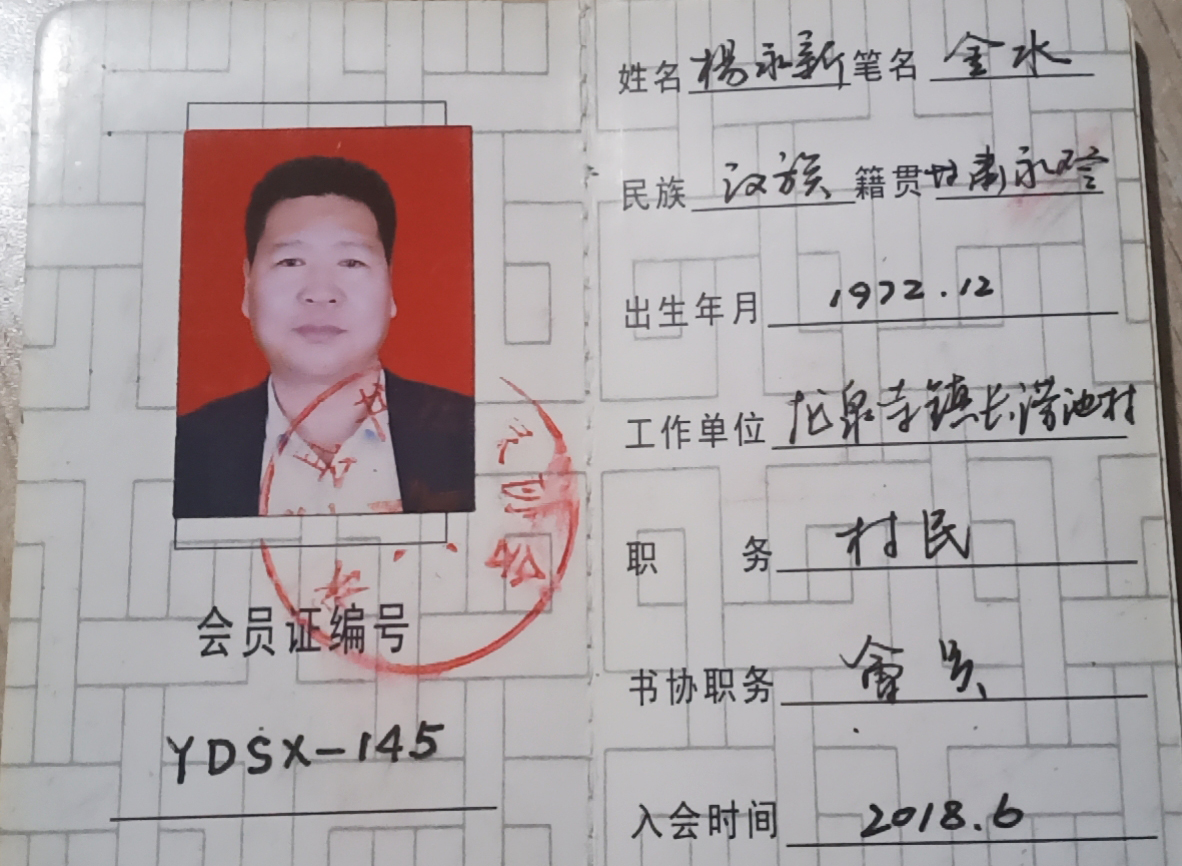 会员证编号
YDSX-145
姓名 楊永新 笔名 金水
民族 汉族 籍贯 甘肃永登
出生年月 1972.12
工作单位 龙泉寺镇长涝池村
职务 村民
书协职务 會员
入会时间 2018.6